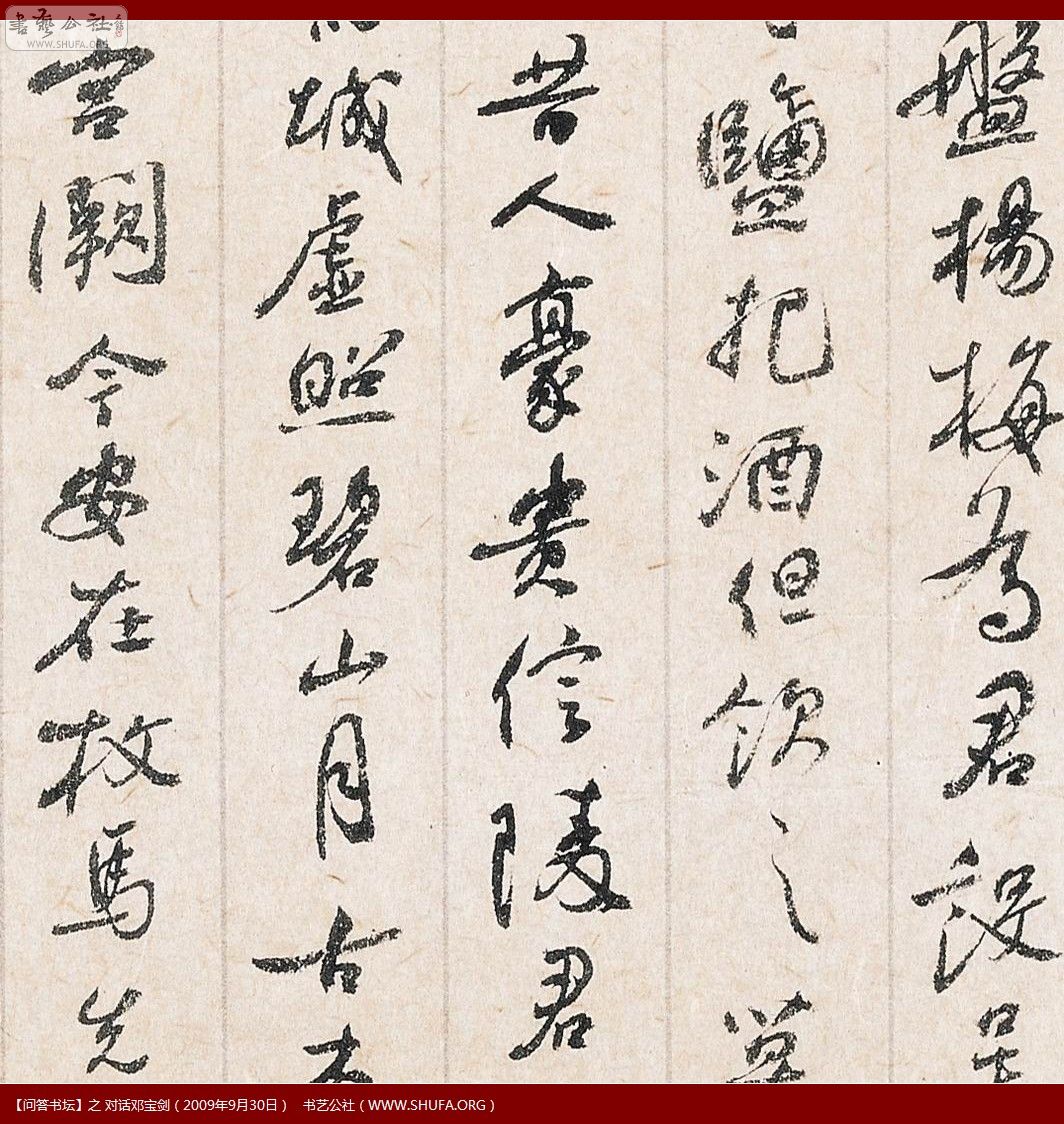 盤楊梅為君設吳
鹽把酒但飲之
昔人豪貴信陵君
城虛照碧山月古木
宮闕今安在枚馬先
書藝公社
WWW.SHUFA.ORG
【问答书坛】之 对话邓宝剑（2009年9月30日） 书艺公社（WWW.SHUFA.ORG）